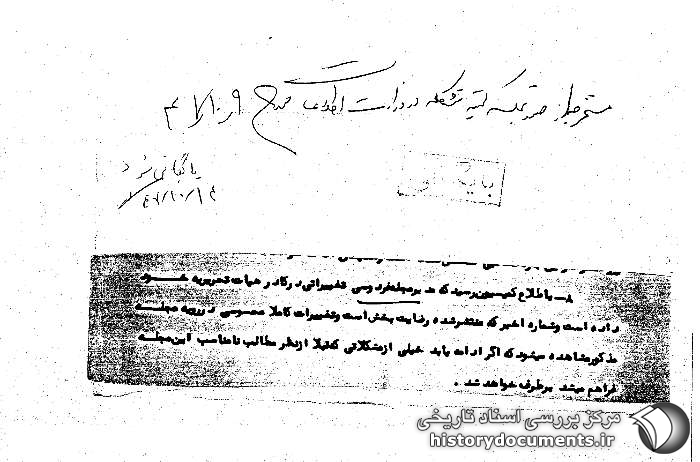 مستخرجه از صورتجلسه کمیته متشکله در وزارت اطلاعات مورخ
بایگانی شود
بایگانی
۸ـ باطلاع کمیسیون رسید که مدیر مجله فردوسی تغییراتی در کادر هیات تحریریه خود
داده است و شماره اخیر که منتشر شده رضایت بخش است و تغییرات کاملا محسوسی در رویه مجله
مذکور مشاهده میشود که اگر ادامه یابد خیلی از مشکلاتی که قبلا از نظر مطالب نامناسب این مجله
فراهم میشد برطرف خواهد شد .
مرکز بررسی اسناد تاریخی
historydocuments.ir